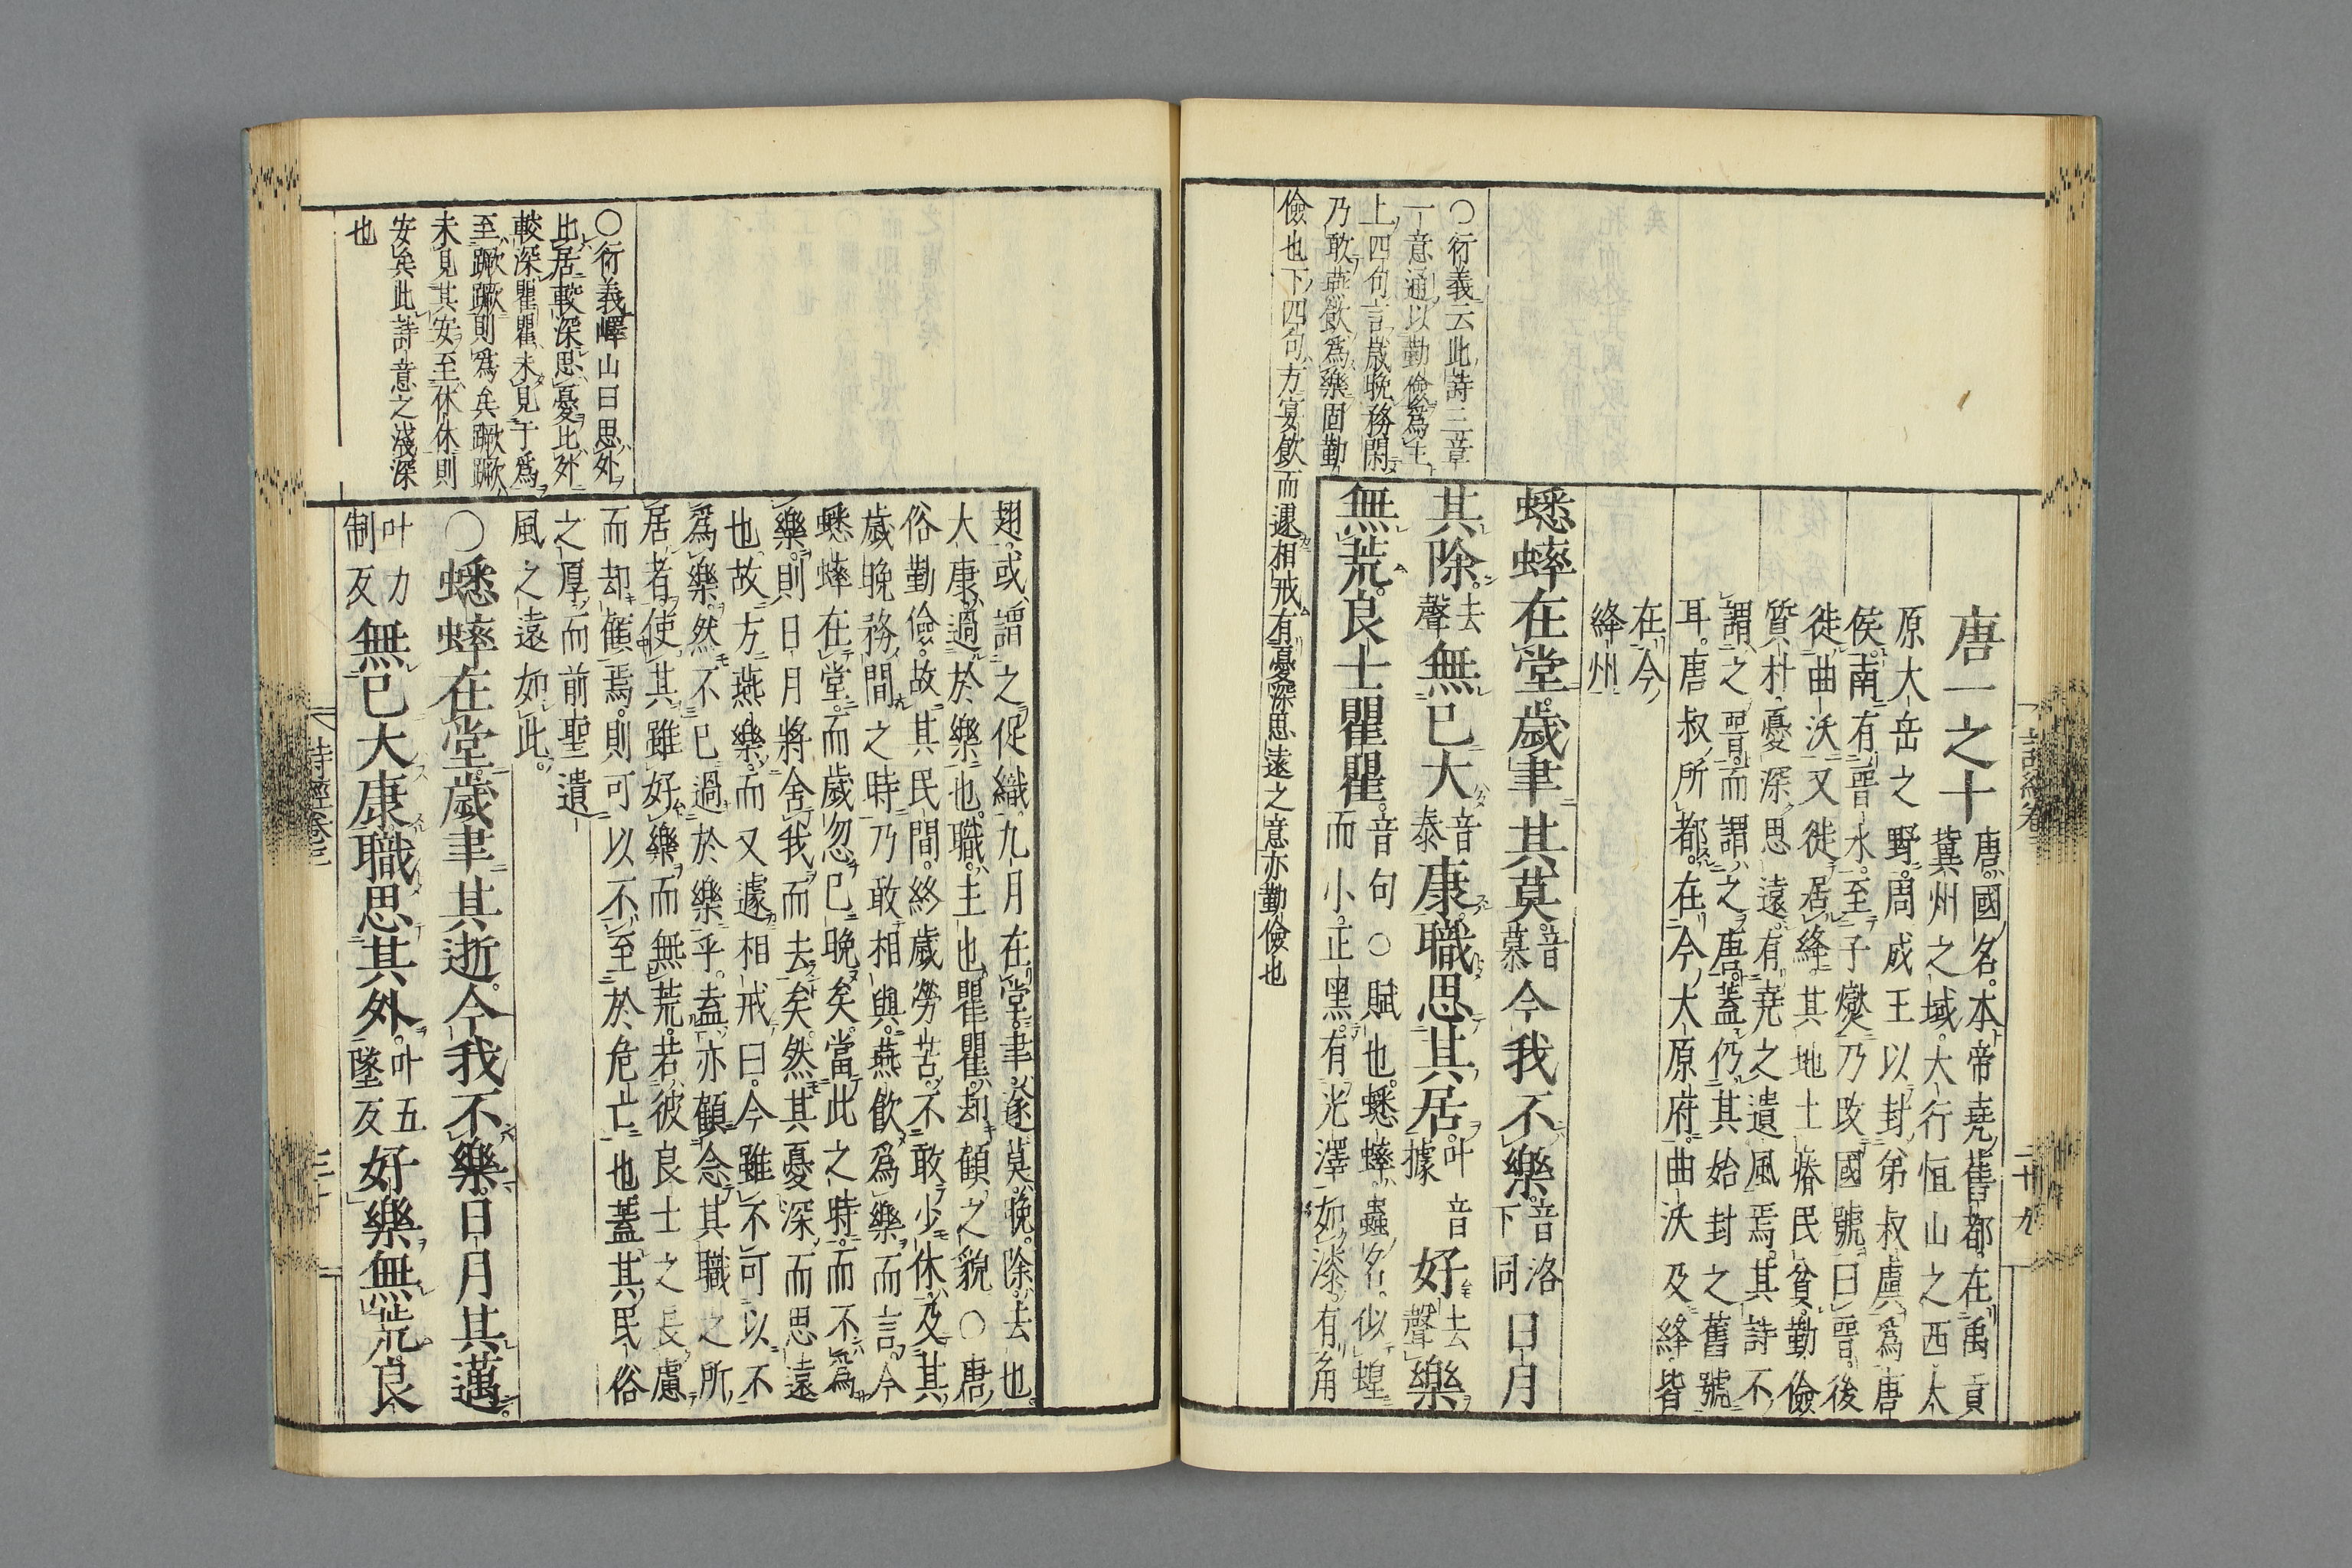 唐一之十
唐國名本帝堯舊都在禹貢
冀州之域大行恒山之西太
原大岳之野周成王以封弟叔虞爲唐
侯南有晉水至子燮乃攺國號曰晉後
徙曲沃又徙居絳其地土瘠民貧勤儉
質朴憂深思遠有堯之遺風焉其詩不
謂之晉而謂之唐蓋仍其始封之舊號
耳唐叔所都在今大原府曲沃及絳皆
在今
絳州
○衍義云此詩三章
一意通以勤儉爲主
上四句言歲晚務閑
乃敢燕飲爲樂固勤
儉也下四句方宴飲而遽相戒有憂深思遠之意亦勤儉也
蟋蟀在堂歲聿其莫音慕今我不樂音洛下同日月
其除去聲無已大音泰康職思其居叶音據好去聲樂
無荒良士瞿瞿音句○賦也蟋蟀蟲名似蝗
而小正黑有光澤如漆有角
詩經卷三
二十九
翅或謂之促織九月在堂聿遂莫晚除去也
大康過於樂也職主也瞿瞿却顧之貌○唐
俗勤儉故其民間終歲勞苦不敢少休及其
歲晚務間之時乃敢相與燕飲爲樂而言今
蟋蟀在堂而歲忽已晚矣當此之時而不爲
樂則日月將舍我而去矣然其憂深而思遠
也故方燕樂而又遽相戒曰今雖不可以不
爲樂然不已過於樂乎蓋亦顧念其職之所
居者使其雖好樂而無荒若彼良士之長慮
而却顧焉則可以不至於危亡也蓋其民俗
之厚而前聖遺
風之遠如此
○衍義嶧山曰思外
比居較深思憂比外
較深瞿瞿未見于爲
至蹶蹶則爲矣蹶蹶
未見其安至休休則
安矣此詩意之淺深
也
○蟋蟀在堂歲聿其逝今我不樂日月其邁
叶力制反無已大康職思其外叶五墜反好樂無荒良
詩經卷三
三十